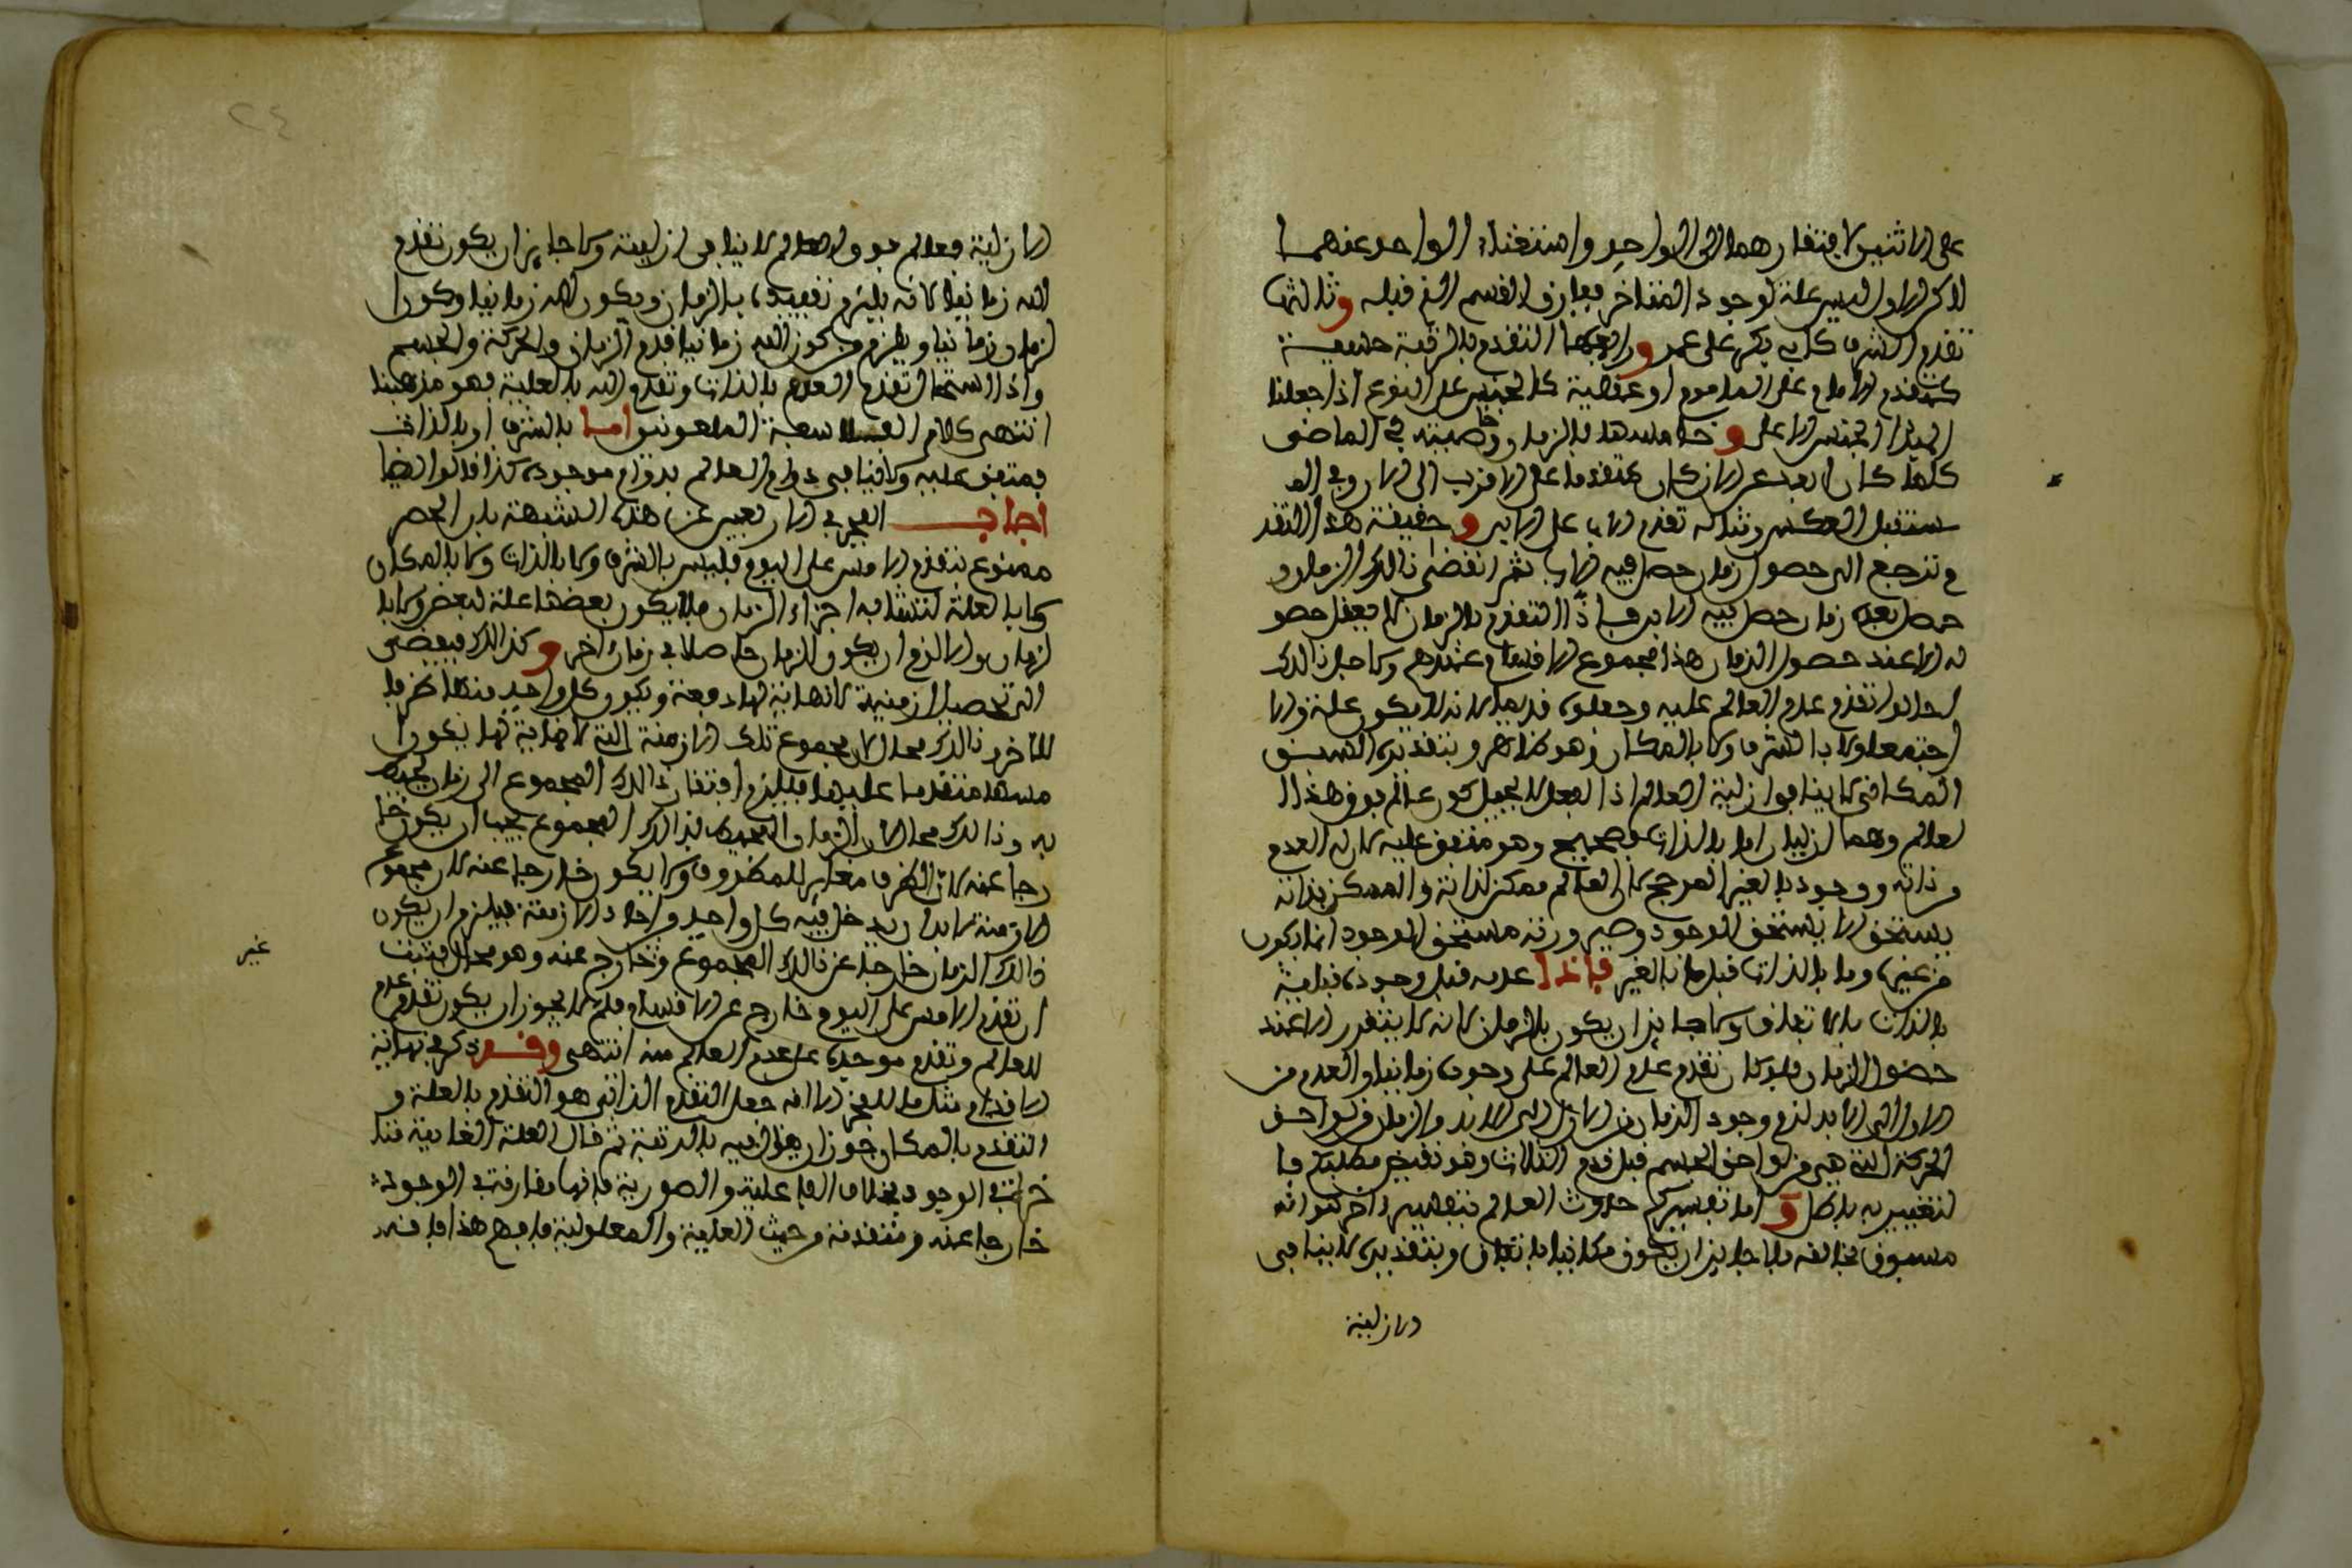 على الاثنين لافتقارهما الى الواحد واستغناء الواحد عنهما
لاكن الاول ليس علة لوجود المتاخر ففارق القسم الذي قبله وثالثها
تقدم الشرف كابي بكر على عمر ورابعها التقدم بالرتبة حسية
كتقدم الامام على الماموم او عقلية كالجنس على النوع اذا جعلنا
المبدأ الجنس الاعلى وخامسها بالزمان وخاصيته في الماضي
كلما كان ابعد عن الان كان متقدما على الاقرب الى الان وفي الم
ستقبل العكس ومثاله تقدم الاب على الابن وحقيقة هذا التقد
م ترجع الى حصول زمان حصل فيه الاب ثم انقضى ذالك الزمان و
حصل بعده زمان حصل فيه الابن فاذا التقدم بالزمان لا يعقل حصو
له الا عند حصول الزمان هذا مجموع الاقسام عندهم ولاجل ذالك
احالوا تقدم عدم العالم عليه وجعلوه قديما لانه لا يكون علة والا
اجتمعا ولا بالشرف ولا بالمكان وهو ظاهر وبتقدير السبق
المكاني لا ينافي ازلية العالم اذ العقل لا يحيل كون عالم فوق هذا ا
لعالم وهما ازليان اما بالذات فصحيح وهو متفق عليه لان له العدم
من ذاته ووجوده بالغير المرجح لان العالم ممكن لذاته والممكن بذاته
يستحق لا يستحق الوجود وصيرورته مستحق الوجود انما يكون
من غيره وما بالذات قبل ما بالغير فاذا عدمه قبل وجوده قبلية
بالذات بلا تعاند ولا جايز ان يكون بالزمان لانه لا يتقرر الا عند
حضور الزمان فلو كان تقدم عدم العالم على وجوده زمانيا والعدم من
الازل الى الابد لزم وجود الزمان من الازل الى الابد والزمان من لواحق
الحركة التي هي من لواحق الجسم قبل قدم الثلاث وهو نقيض مطلبكم فا
لتفسير به باطل واما تفسيركم حدوث العالم بتفسير اخر كقوله انه
مسبوق بخالقه فلا جايز ان يكون مكانيا باتفاق وبتقديره لا ينافي
الازلية
الازلية فعالم فوق العالم لا ينافي ازليته ولا جايز ان يكون تقدم
الله زمانيا لانه يلزم تقييده بالزمان ويكون الله زمانيا وكون ا
لزمان زمانيا ويلزم من كون الله زمانيا قدم الزمان والحركة والجسم
واذا استحال تقدم العدم بالذات وتقدم الله بالعلية فهو مذهبنا
انتهى كلام الفلاسفة الملعونين اما بالشرف او بالذات
فمتفق عليه ولا ينافي دوام العالم بدوام موجوده كذا قالوا ايضا
اجاب الفخر في الاربعين عن هذه الشبهة بان الحصر
ممنوع بتقدم الامس على اليوم فليس بالشرف ولا بالذات ولا بالمكان
ولا بالعلة لتشابه اجزاء الزمان فلا يكون بعضها علة لبعض ولا بال
لزمان والا لزم ان يكون الزمان حاصلا في زمان اخر وكذالك فيفضي
الى تحصيل ازمنية لا نهاية لها دفعة ويكون كل واحد منها ظرفا
للاخر وذالك محال لان مجموع تلك الازمنة التي لا نهاية لها يكون ا
مسها متقدما على يومها فيلزم افتقار ذالك المجموع الى زمان يحيط
به وذالك محال لان الزمان المحيط بذالك المجموع يجب ان يكون خا
رجا عنه لان الظرف مغاير للمظروف ولا يكون خارجا عنه لان مجموع
الازمنة لا بد ان يدخل فيه كل واحد واحاد الازمنة فيلزم ان يكون
ذالك الزمان خارجا عن ذالك المجموع وخارج عنه وهو محال فثبت غير
ان تقدم الامس على اليوم خارج عن الاقسام فلم لا يجوز ان يكون تقدم عدم
العالم وتقدم موجده على عدم العالم منه انتهى وقد ذكر في نهاية
الاقدام مثل ما للفخر الا انه جعل التقدم الذاتي هو التقدم بالعلة و
التقدم بالمكان جوز ان يقال فيه بالرتبة ثم قال العلة الغايية تتا
خر في الوجود بخلاف الفاعلية والصورية فانها مقارنة في الوجود
خارجا عنه ومتقدمة من حيث العلية والمعلولية فافهم هذا فانه